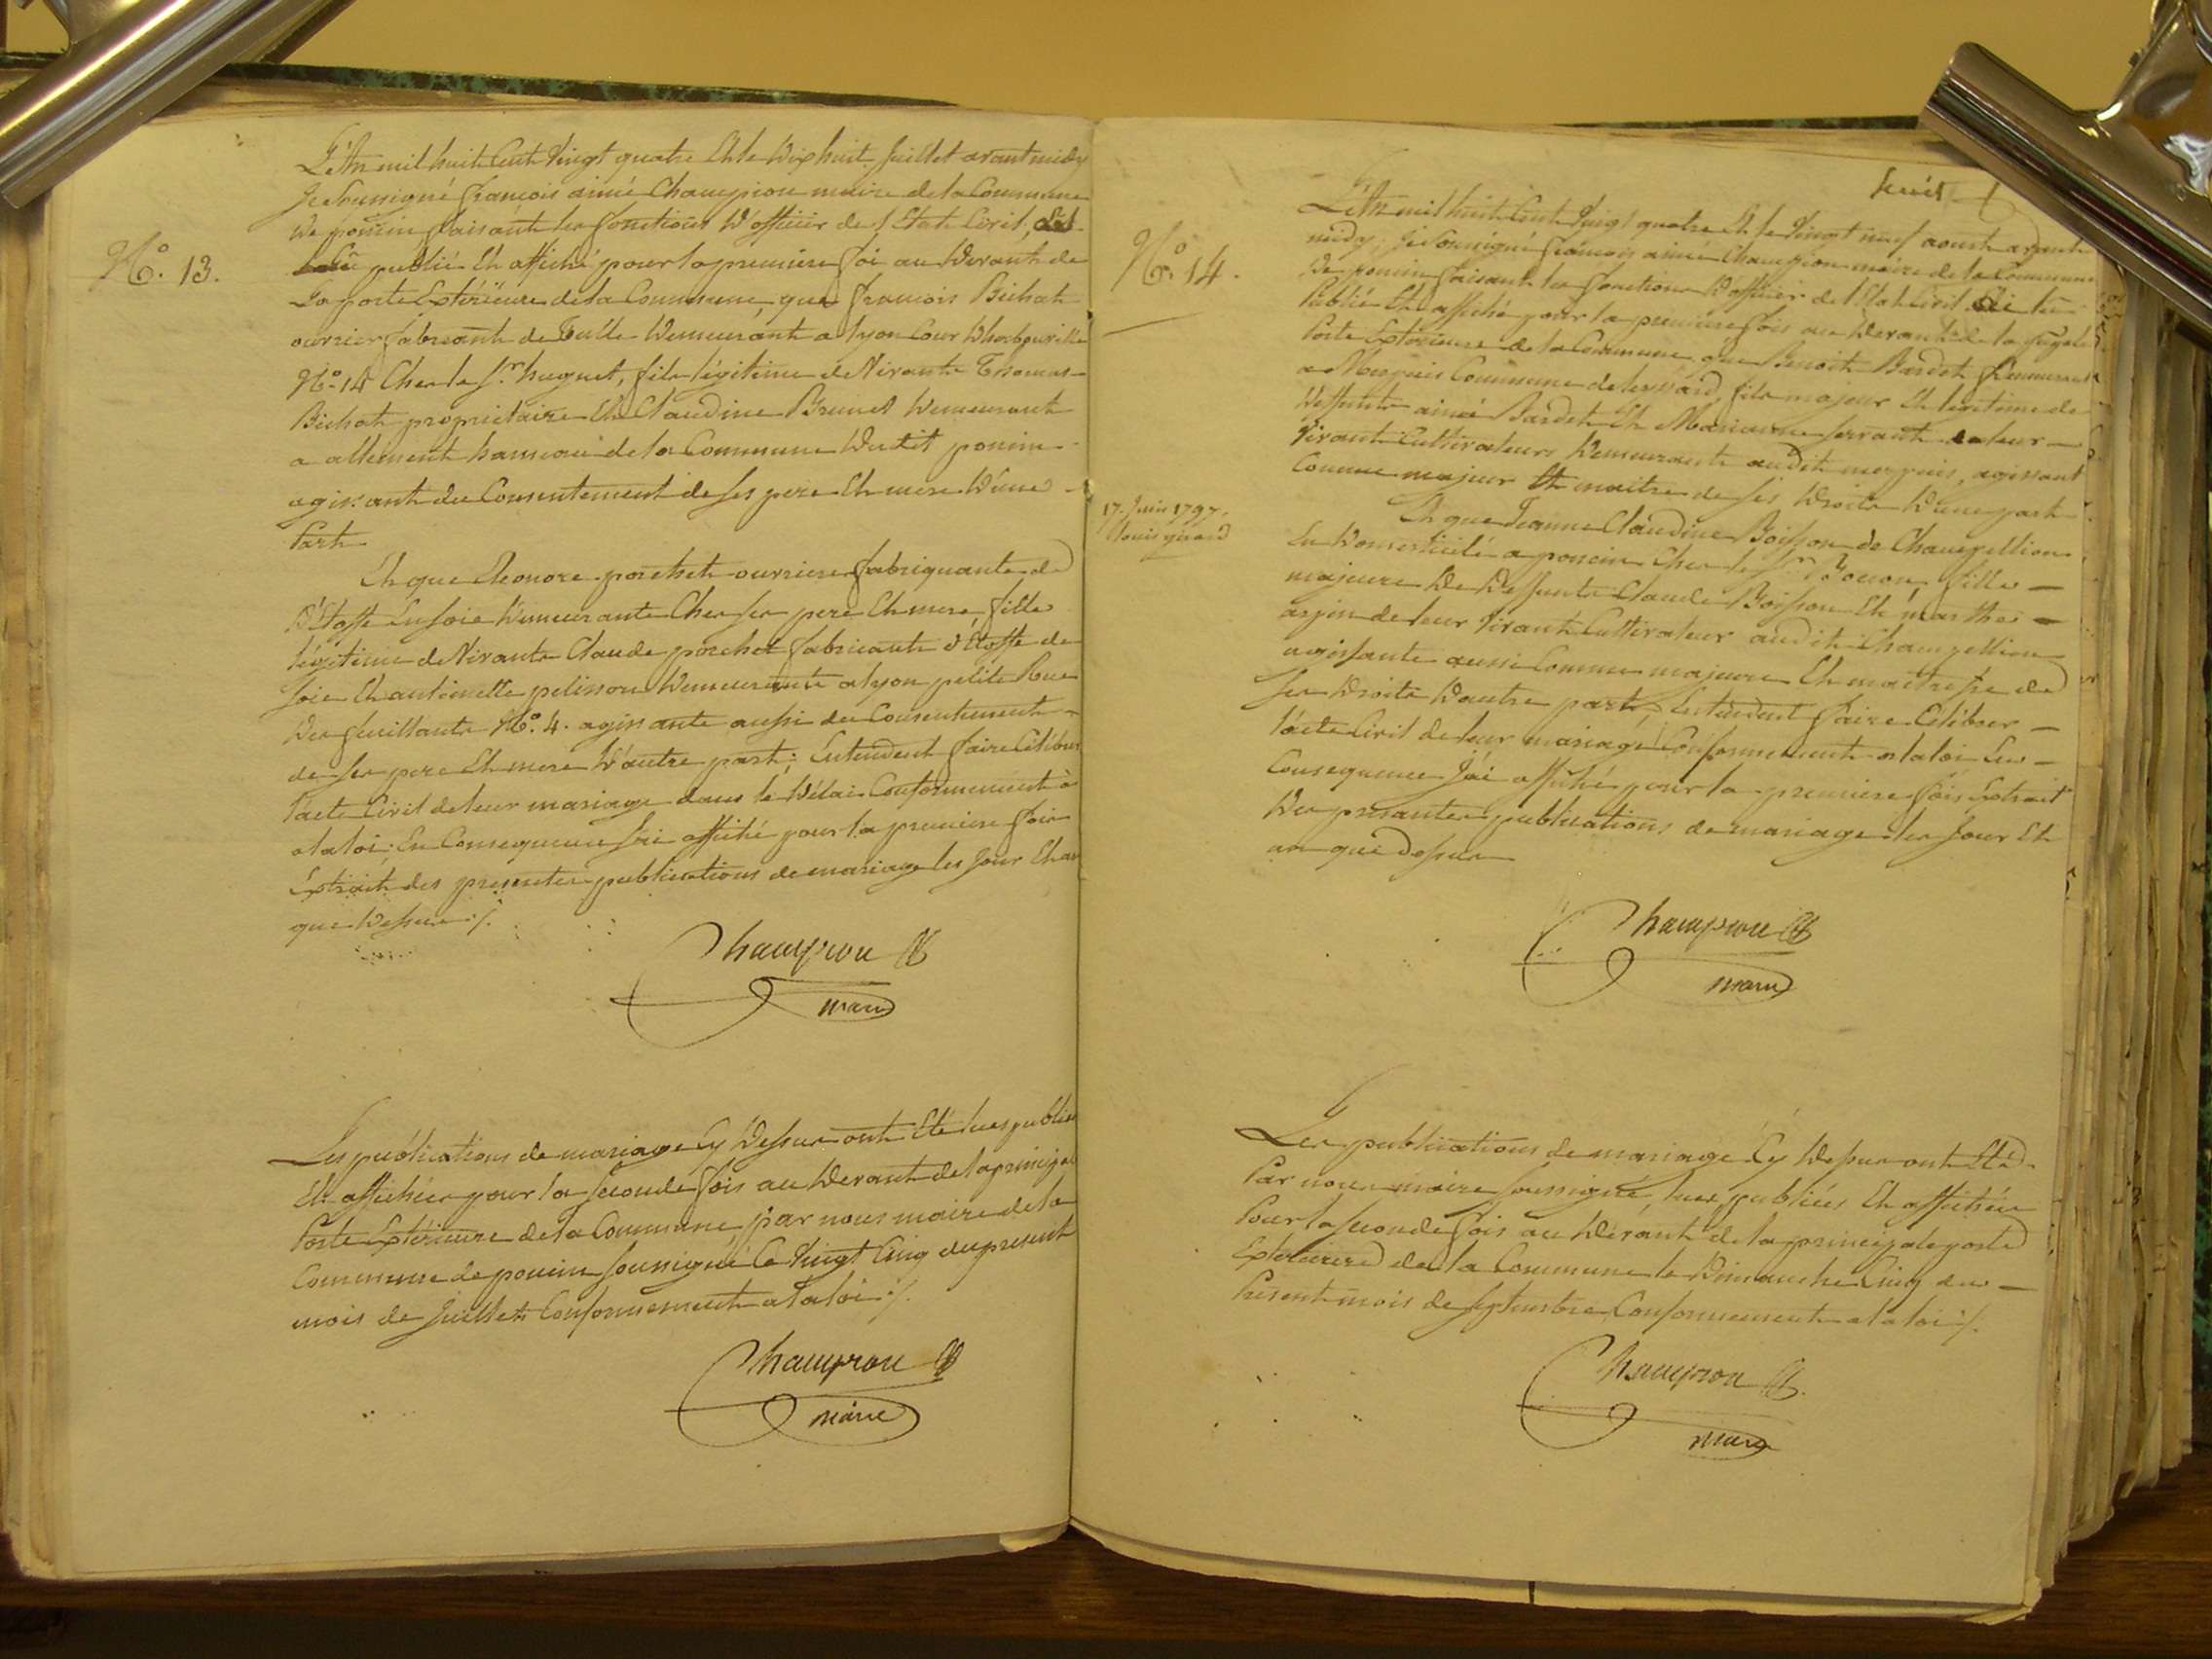 N.° 13.
L'An mil huit Cent Vingt quatre Et le Dix huit Juillet avant midy
Je Soussigné François aimé Champion maire de la Commune
De poncin faisant les fonctions D'officier de l'Etat Civil,
publié Et affiché pour la premiere foi au Devant de
La porte Extérieure de la Commune, que françois Bichat
ouvrier fabricant de Tulle Demeurant a lyon Cour
N.° 14 Chez le S.r huguet, fils légitime de Vivants Thomas
Bichat propriétaire Et Claudine Brunet Demeurant
a allement hameau de la Commune Dudit poncin
agissant du Consentement de ses pere Et mere D'une
Part
Et que Eleonore porchet ouvriere fabriquante de
D'Etoffe En soie Demeurante Chez ses pere Et mere, fille
légitime de Vivants Claude porchet fabricant d'Etoffe de
Soie Et antoinette pelisson Demeurants a lyon petite Rue
Des feuillants N.° 4. agissante aussi du Consentement
de ses pere Et mere D'autre part; Entendent faire Célébrer
l'acte Civil de leur mariage dans le Délai Conformement à
a la loi. En Consequence J'ai affiché pour la premiere fois
Extrait des presentes publications de mariage les Jour Et an
que Dessus ./.
Champion
maire
Les publications de mariage Cy Dessus ont Été lues publiées
Et affichées pour la seconde fois au Devant de la principale
Porte Extérieure de la Commune, par nous maire de la
Commune de poncin soussigné Ce Vingt Cinq du present
mois de Juillet Conformement a la loi ./.
Champion
maire
huit
N.° 14.
L'An mil huit Cent Vingt quatre Et le Vingt neuf aoust avant
midy, Je Soussigné François aimé Champion maire de la Commune
De poncin faisant les fonctions D'officier de l'Etat Civil ai lu
Publié Et affiché pour la premiere fois au Devant de la
Porte Extérieure de la Commune, que Benoit Bardet Demeurant
a Merpuis Commune de Serrières, fils majeur Et légitime de
Deffunts aimé Bardet Et Marianne Servant de leur
Vivant Cultivateurs Demeurants audit merpuis, agissant
Comme majeur Et maitre de ses Droits D'une part
17. Juin 1797.
Et que Jeanne Claudine Boisson de Champellion
Domesticité a poncin Chez le S.r Bouon, fille
majeure De Deffunts Claude Boisson Et marthe
de leur Vivant Cultivateur audit Champellion
agissante aussi Comme majeure Et maitresse de
ses Droits D'autre part, Entendent faire Célébrer
l'acte Civil de leur mariage Conformement a la loi En
Consequence J'ai affiché pour la premiere fois Extrait
Des présantes publications de mariage les Jour Et
an que dessus
Champion
maire
Les publications de mariage Cy Dessus ont Eté
Par nous maire soussigné, lues, publiées Et affichées
Pour la seconde fois au Dévant de la principale porte
Exterieure de la Commune le Dimanche Cinq du
Présent mois de Septembre Conformement a la loi ./.
Champion
maire